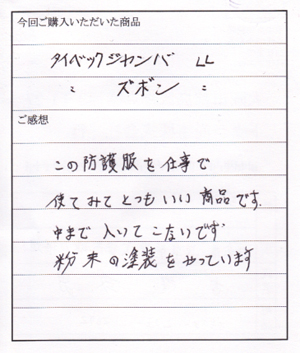 今回ご購入いただいた商品
タイベックジャンバ LL
〃 ズボン 〃
ご感想
この防護服を仕事で
使てみてとつもいい商品です。
中まで入いてこないです。
粉末の塗装をやっています